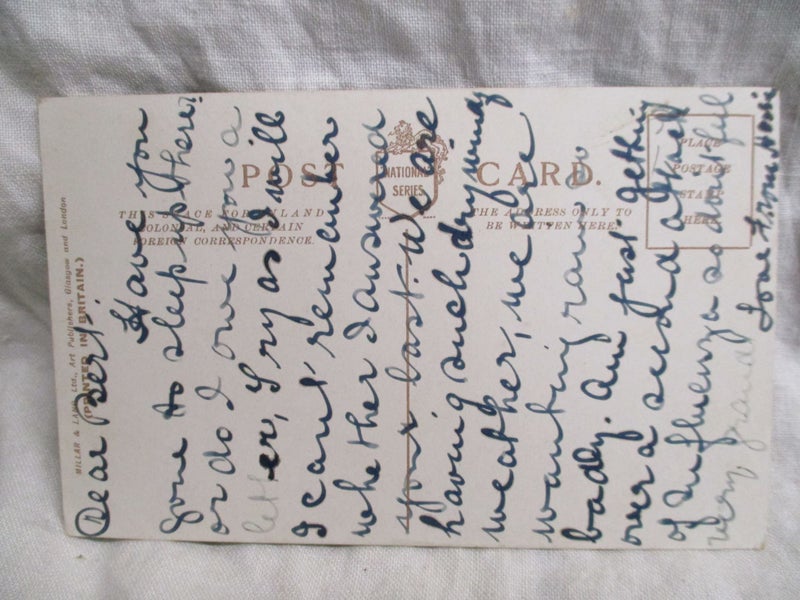 POST CARD.
NATIONAL SERIES
THIS SPACE FOR INLAND
COLONIAL, AND CERTAIN
FOREIGN CORRESPONDENCE.
THE ADDRESS ONLY TO
BE WRITTEN HERE.
PLACE
POSTAGE
STAMP
HERE
MILLAR & LANG Ltd., Art Publishers, Glasgow and London
(PRINTED IN BRITAIN.)
Dear Bert.
Have you
gone to sleep up there?
or do I owe you a
letter, I ry as I will
I can't remember
whether I answered
your last. We are
having such dry windy
weather, we are
wanting rain so
badly. Am just getting
over a second attack
of Influenza so doubtful
very
Love from